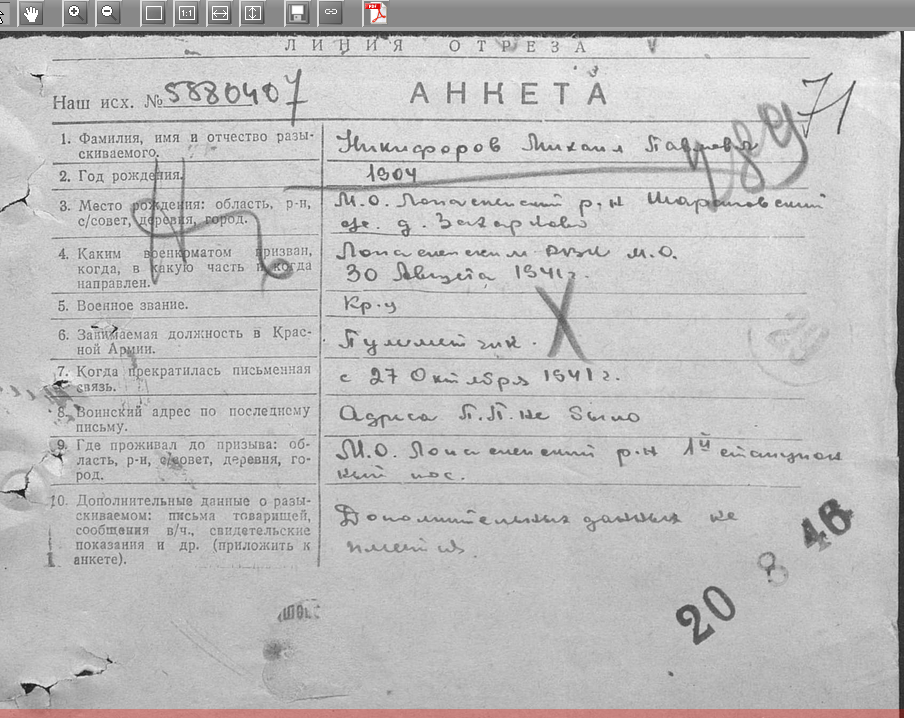 1:1
PDF
ЛИНИЯ ОТРЕЗА
Наш исх. № 5880407
АНКЕТА
71
1. Фамилия, имя и отчество разы-
скиваемого.
Никифоров Михаил Павлович
2. Год рождения.
1904
3. Место рождения: область, р-н,
с/совет, деревня, город.
М.О. Лопасненский р-н Шараповский
д. Захарково
4. Каким военкоматом призван,
когда, в какую часть и когда
направлен.
Лопасненским РВК М.О.
30 Августа 1941 г.
5. Военное звание.
Кр-ц
6. Занимаемая должность в Крас-
ной Армии.
Пулеметчик.
7. Когда прекратилась письменная
связь.
с 27 Октября 1941 г.
8. Воинский адрес по последнему
письму.
Адреса П.П. не было
9. Где проживал до призыва: об-
ласть, р-н, с/совет, деревня, го-
род.
М.О. Лопасненский р-н 1й станцион
ный пос.
10. Дополнительные данные о разы-
скиваемом: письма товарищей,
сообщения в/ч., свидетельские
показания и др. (приложить к
анкете).
Дополнительных данных не
имеется.
20 8 46